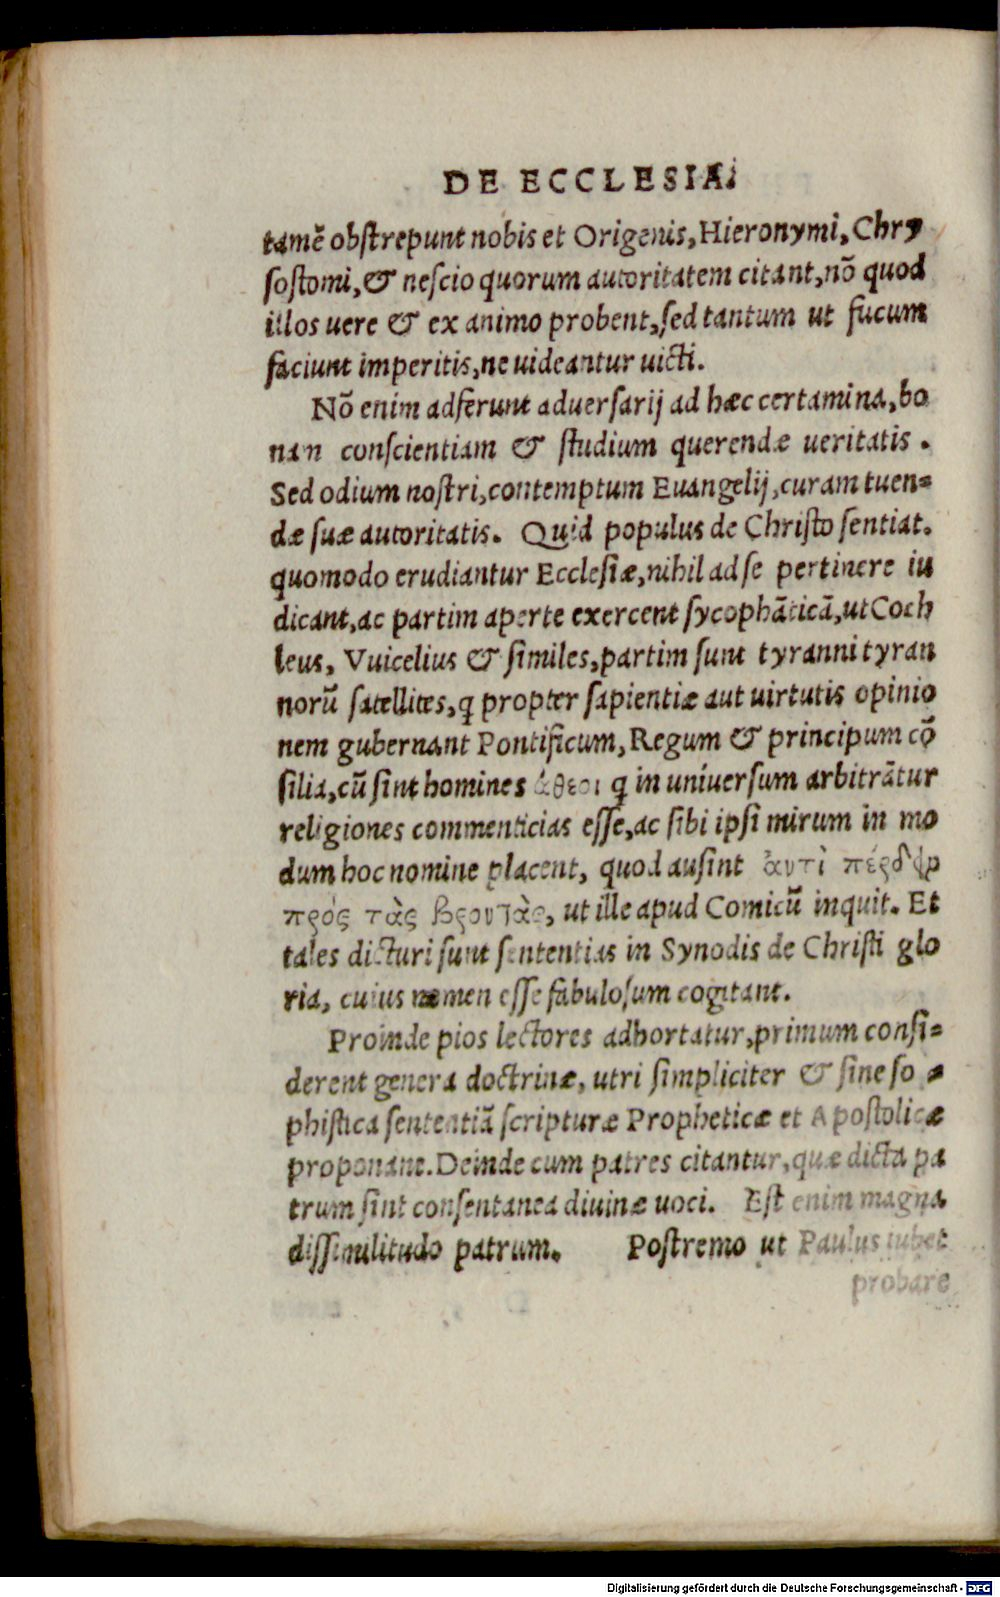 DE ECCLESIA.
tamē obstrepunt nobis et Origenis, Hieronymi, Chry
sostomi, & nescio quorum autoritatem citant, nō quod
illos uere & ex animo probent, sed tantum ut fucum
faciunt imperitis, ne uideantur uicti.
Nō enim adferunt aduersarij ad hæc certamina, bo
nan conscientiam & studium querendæ ueritatis.
Sed odium nostri, contemptum Euangelij, curam tuen=
dæ suæ autoritatis. Quid populus de Christo sentiat.
quomodo erudiantur Ecclesiæ, nihil ad se pertinere iu
dicant, ac partim aperte exercent sycophāticā, ut Coch
leus, Vuicelius & similes, partim sunt tyranni tyran
norū satellites, q propter sapientiæ aut uirtutis opinio
nem gubernant Pontificum, Regum & principum cō
silia, cū sint homines ἄθεοι q in uniuersum arbitrātur
religiones commenticias esse, ac sibi ipsi mirum in mo
dum hoc nomine placent, quod ausint ἀντὶ πέρδειν
πρός τὰς βροντὰς, ut ille apud Comicū inquit. Et
tales dicturi sunt sententias in Synodis de Christi glo
ria, cuius nomen esse fabulosum cogitant.
Proinde pios lectores adhortatur, primum consi=
derent genera doctrinæ, utri simpliciter & sine so=
phistica sententiā scripturæ Propheticæ et Apostolicæ
proponant. Deinde cum patres citantur, quæ dicta pa
trum sint consentanea diuinæ uoci. Est enim magna
dissimilitudo patrum. Postremo ut Paulus iubet
probare
Digitalisierung gefördert durch die Deutsche Forschungsgemeinschaft - DFG